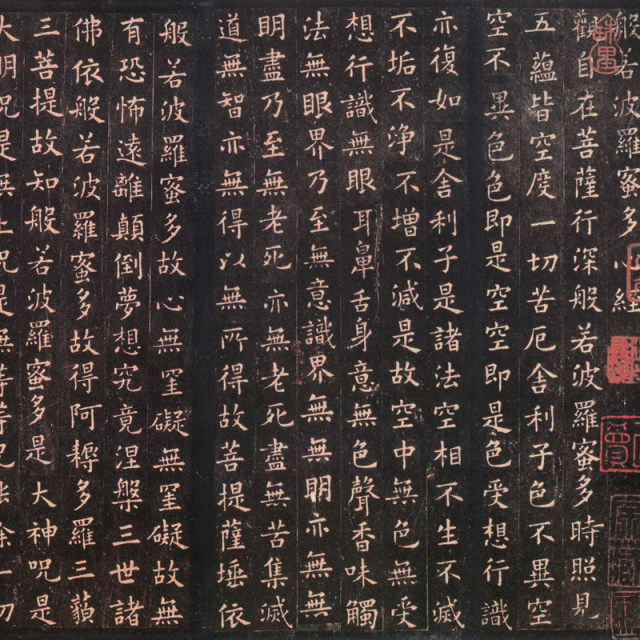 般若波羅蜜多心經
觀自在菩薩行深般若波羅蜜多時照見
五蘊皆空度一切苦厄舍利子色不異空
空不異色色即是空空即是色受想行識
亦復如是舍利子是諸法空相不生不滅
不垢不净不增不減是故空中無色無受
想行識無眼耳鼻舌身意無色聲香味觸
法無眼界乃至無意識界無無明亦無無
明盡乃至無老死亦無老死盡無苦集滅
道無智亦無得以無所得故菩提薩埵依
般若波羅蜜多故心無罣礙無罣礙故無
有恐怖遠離顛倒夢想究竟涅槃三世諸
佛依般若波羅蜜多故得阿耨多羅三藐
三菩提故知般若波羅蜜多是大神呪是
大明呪是無上呪是無等等呪能除一切